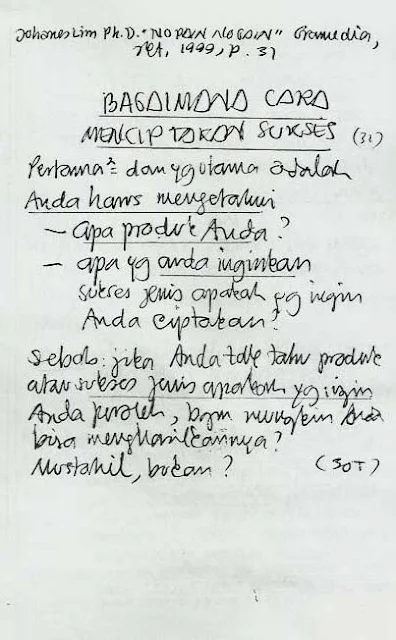 Johanes Lim Ph.D. "NO PAIN NO GAIN" Gramedia,
1999, p. 31
BAGAIMANA CARA
MENCIPTAKAN SUKSES (31)
Pertama² dan yg utama adalah
Anda harus mengetahui
- apa produk Anda?
- apa yg anda inginkan
sukses jenis apakah yg ingin
Anda ciptakan?
Sebab: jika Anda tdk tahu produk
atau sukses jenis apakah yg ingin
Anda peroleh, bgm mungkin Anda
bisa menghasilkannya?
Mustahil, bukan? (30T)